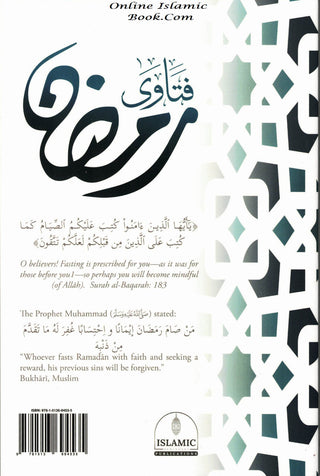 Online Islamic
Book.Com
فتاوى
رمضان
﴿يَٰٓأَيُّهَا ٱلَّذِينَ ءَامَنُوا۟ كُتِبَ عَلَيْكُمُ ٱلصِّيَامُ كَمَا
كُتِبَ عَلَى ٱلَّذِينَ مِن قَبْلِكُمْ لَعَلَّكُمْ تَتَّقُونَ﴾
O believers! Fasting is prescribed for you—as it was for
those before you1—so perhaps you will become mindful
(of Allâh). Surah al-Baqarah: 183
The Prophet Muhammad (ﷺ) stated:
مَنْ صَامَ رَمَضَانَ إِيمَانًا وَ احْتِسَابًا غُفِرَ لَهُ مَا تَقَدَّمَ
مِنْ ذَنْبِهِ
"Whoever fasts Ramadân with faith and seeking a
reward, his previous sins will be forgiven."
Bukhârî, Muslim
ISLAMIC
PUBLICATIONS